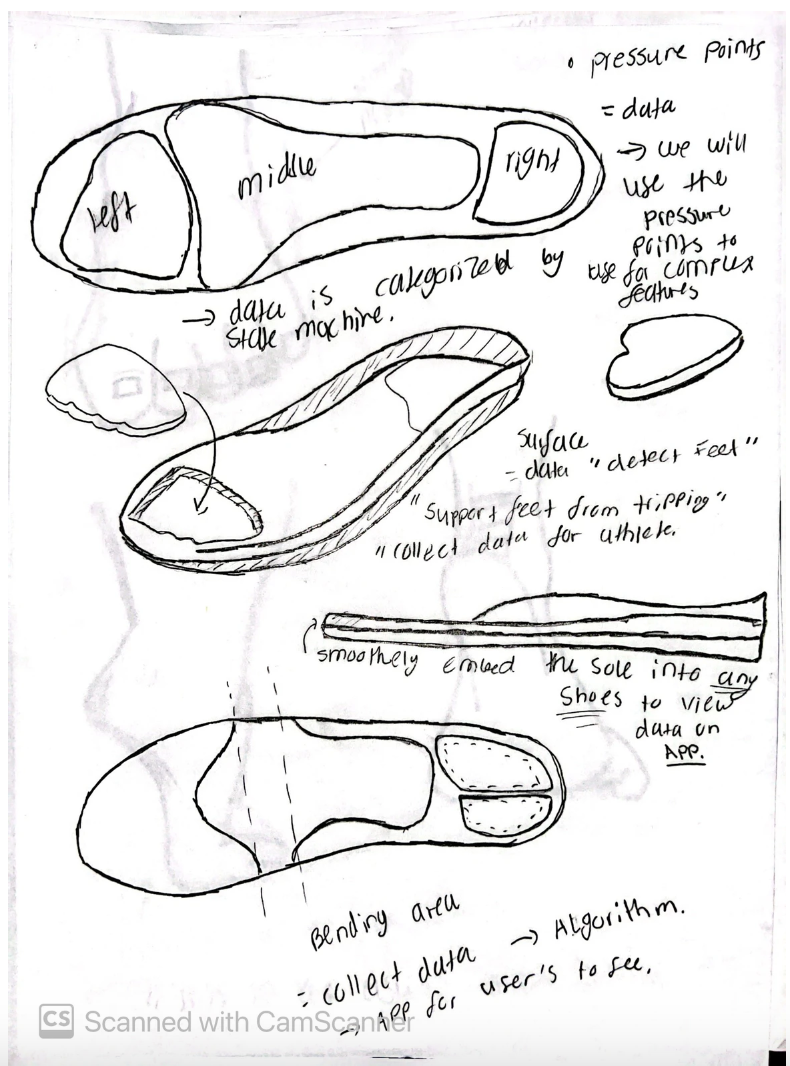 • pressure points
= data
→ we will
use the
pressure
points to
use for complex
features
left
middle
right
→ data is categorized by
state machine.
surface
= data "detect feet"
"support feet from tripping"
"collect data for athlete.
smoothely embed the sole into any
shoes to view
data on
APP.
Bending area
= collect data → Algorithm.
→ APP for user's to see.
CS Scanned with CamScanner